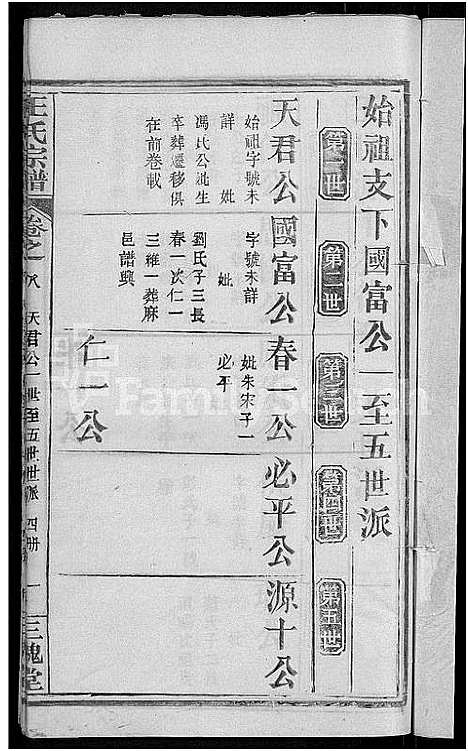 始祖支下國富公一至五世派
第一世
第二世
第三世
第四世
第五世
天君公
始祖字號未
詳 妣
馮氏公妣生
卒葬遷移俱
在前卷載
國富公
字號未詳
妣
劉氏子三長
春一次仁一
三維一葬麻
邑譜與
春一公
妣朱宋子一
必平
必平公
源十公
仁一公
王氏宗譜
卷之八
天君公一世至五世世派
四册
一
三槐堂
FamilySearch